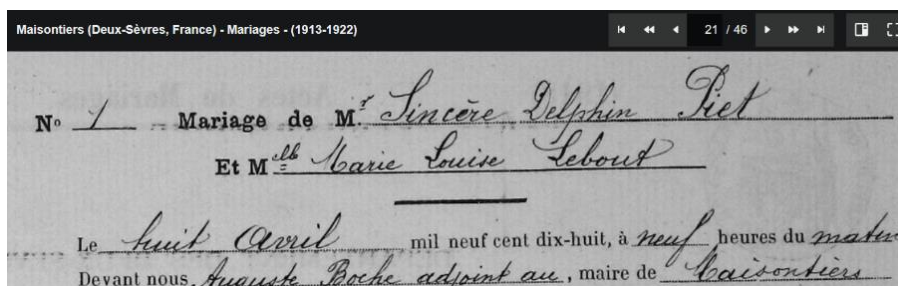 Maisontiers (Deux-Sèvres, France) - Mariages - (1913-1922) 21 / 46
N° 1 Mariage de M.r Sincère Delphin Piet
Et M.elle Marie Louise Lebout
Le huit Avril mil neuf cent dix-huit, à neuf heures du matin
Devant nous, Auguste Boche adjoint au, maire de Maisontiers